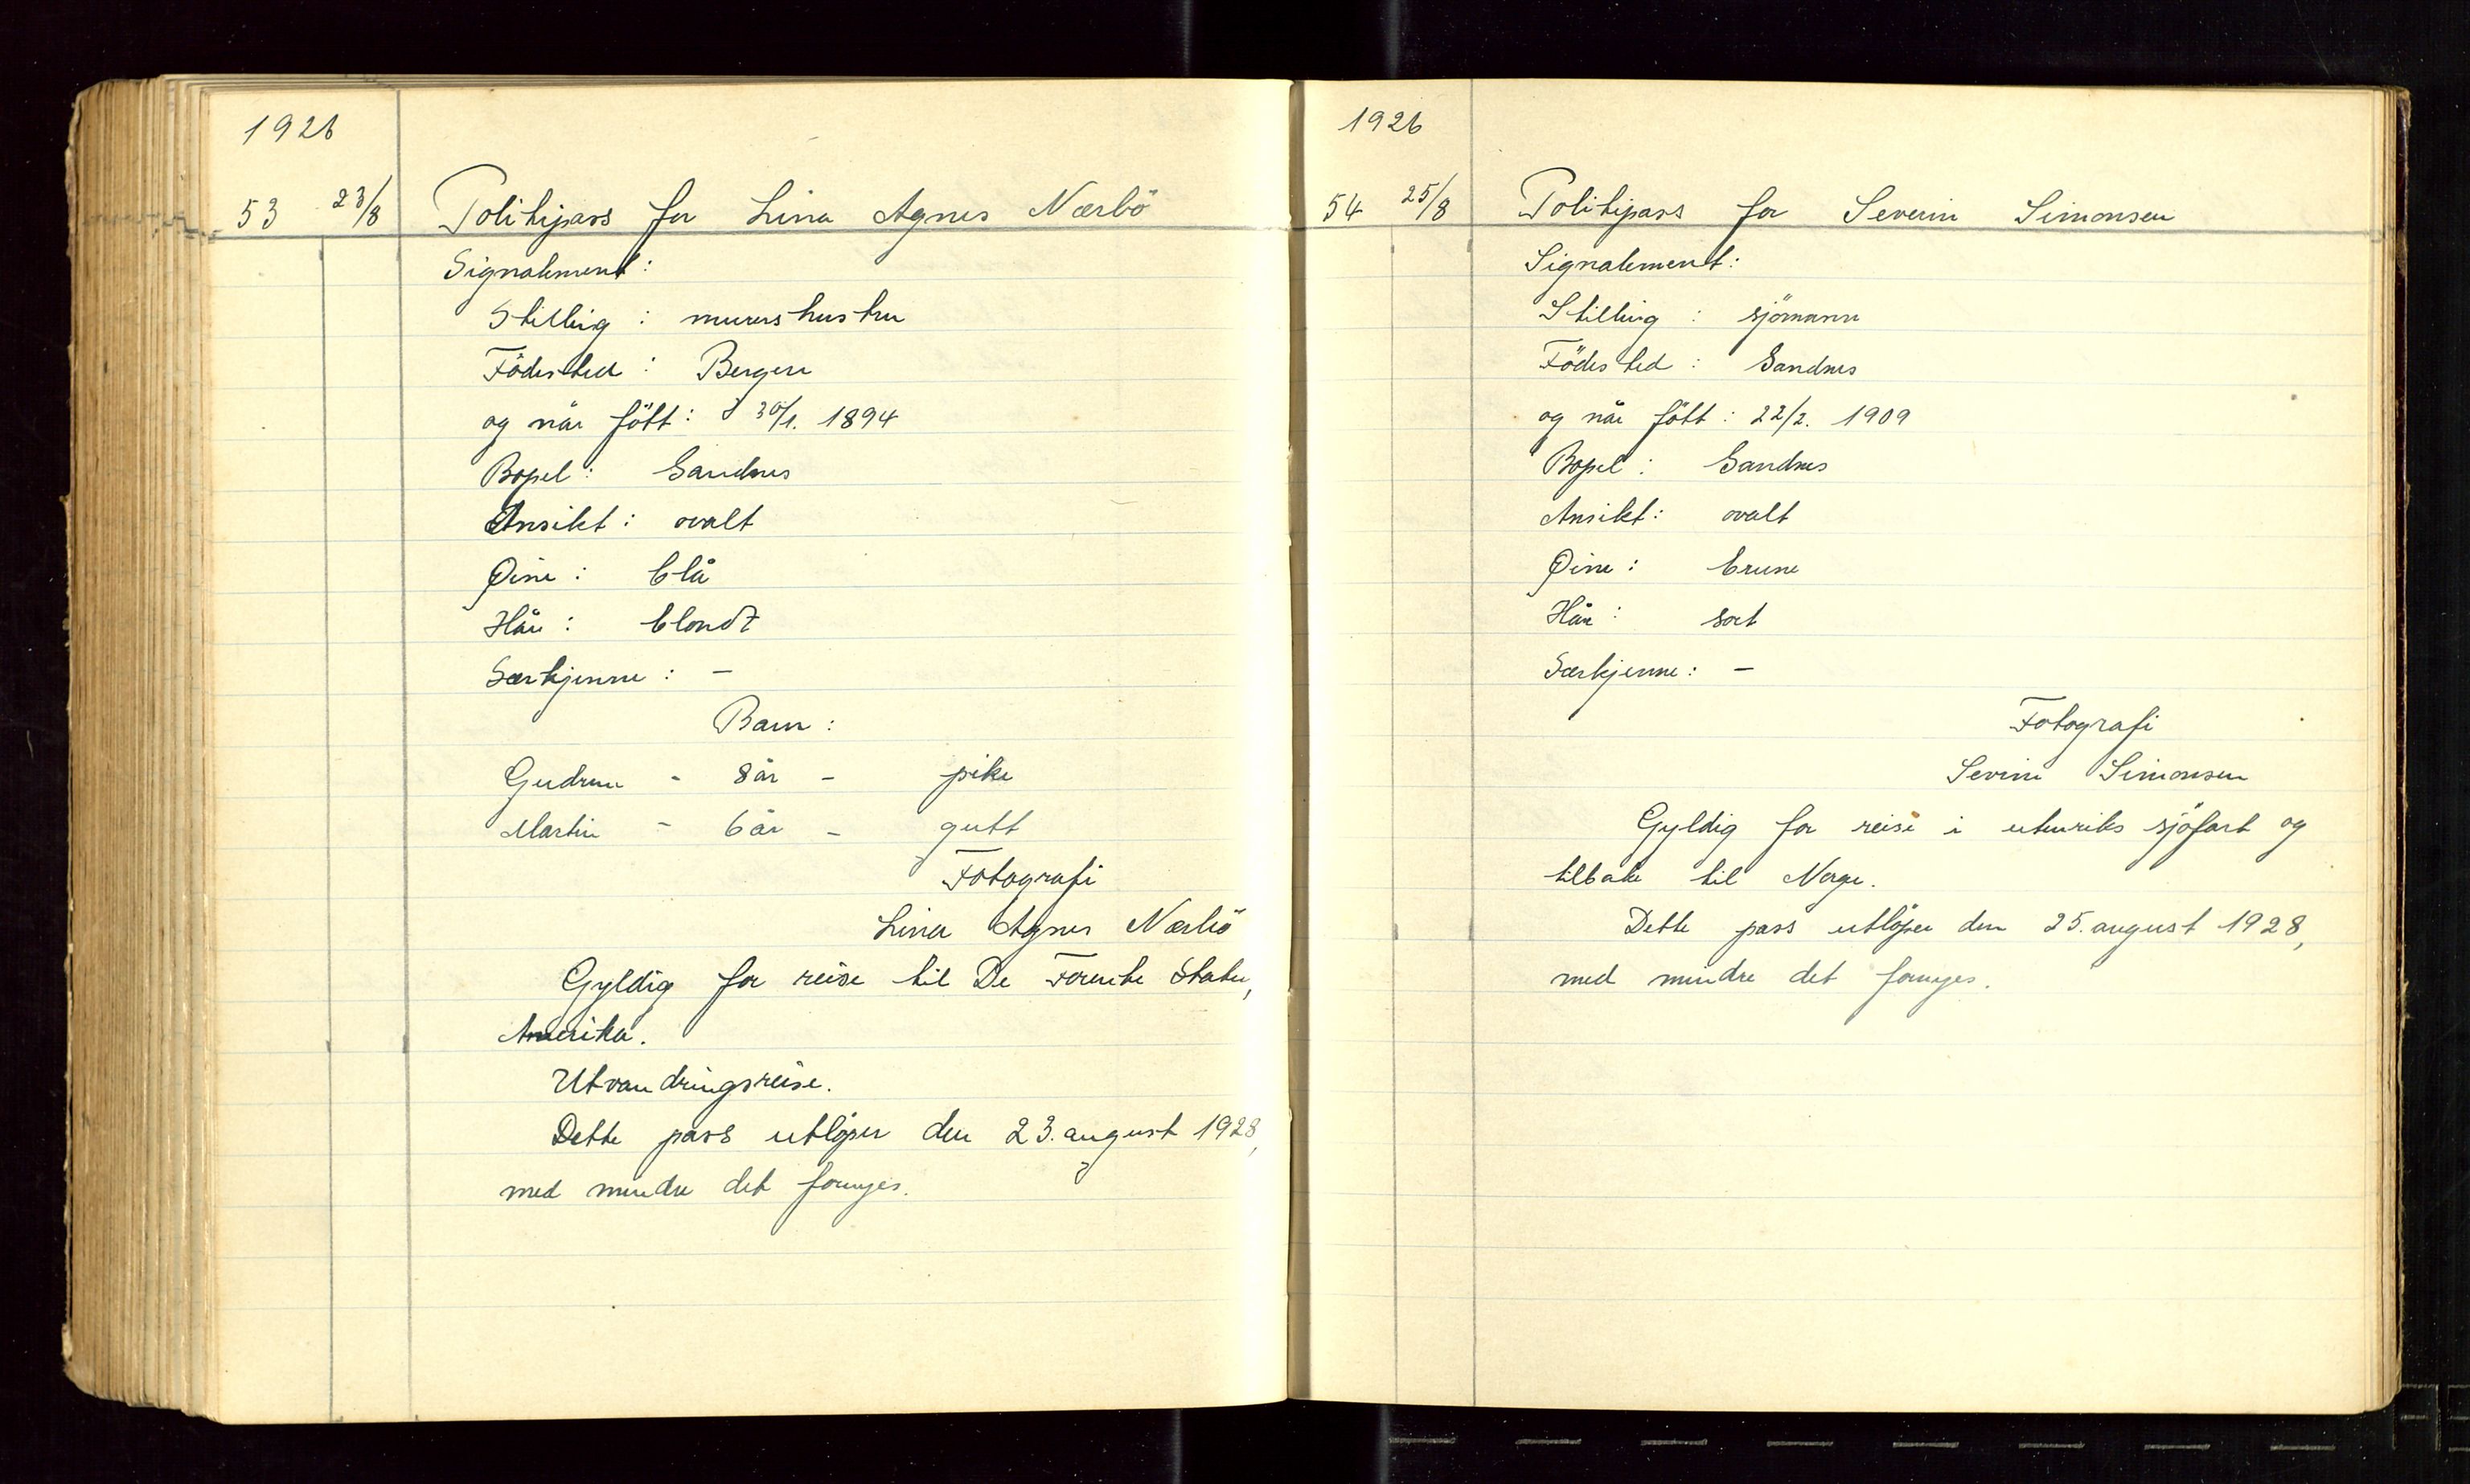 1926
53 23/8 Politipass for Lina Agnes Nærbö
Signalement:
Stilling : murershustru
Födested : Bergen
og når fött: 30/1. 1894
Bopel: Sandnes
Ansikt : ovalt
Øine : blå
Hår : blondt
Særkjenne : -
Barn :
Gudrun - 8 år - pike
Martin - 6 år - gutt
Fotografi
Lina Agnes Nærbö
Gyldig for reise til De Forente Stater,
Amerika.
Utvandringsreise.
Dette pass utlöper den 23. august 1928,
med mindre det fornyes.
1926
54 25/8 Politipass for Severin Simonsen
Signalement:
Stilling : sjömann
Födested : Sandnes
og når fött : 22/2. 1909
Bopel : Sandnes
Ansikt: ovalt
Øine : brune
Hår : sort
Særkjenne: -
Fotografi
Severin Simonsen
Gyldig for reise i utenriks sjöfart og
tilbake til Norge.
Dette pass utlöper den 25. august 1928,
med mindre det fornyes.